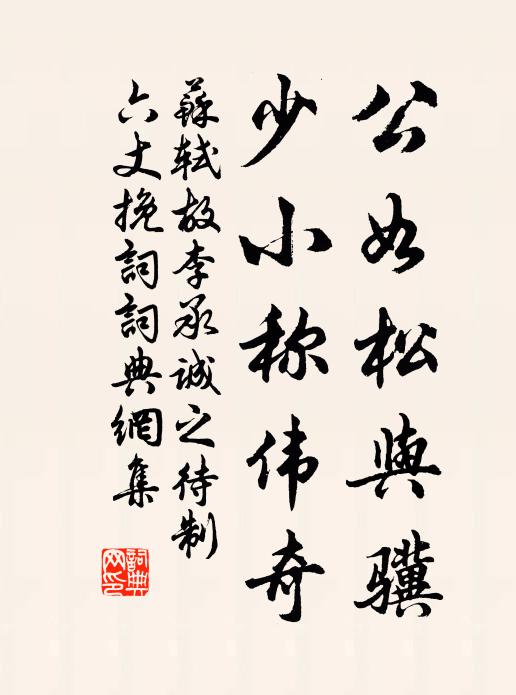 公如松與骥
少小称伟奇
蘇軾故李承诚之待制
六丈挽詞詞典網集
詞典网印